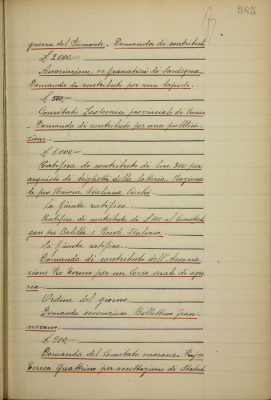 385
guerra del Piemonte. Domanda di contributo
£ 2000.–
Associazione ex Granatieri di Sardegna
Domanda di contributo per una lapide.
£ 500.–
Comitato Zootecnico provinciale di Cuneo
Domanda di contributo per una pubblica-
zione.
£ 5.000.–
Ratifica di contributo di lire 300 per
acquisto di biglietti della Lotteria Nazionale
pro Unione Italiana Ciechi.
La Giunta ratifica.
Ratifica di contributo di £ 100 al Comitato
gare tra Balilla e Piccole Italiane.
La Giunta ratifica.
Domanda di contributo dell'Associa-
zione Pro Torino per un Corso serale di
Ordine del giorno
Domanda sovvenzione Bollettino Fran-
cescano.
£ 200.–
Domanda del Comitato onoranze
Teresa Quattrino per accettazione di